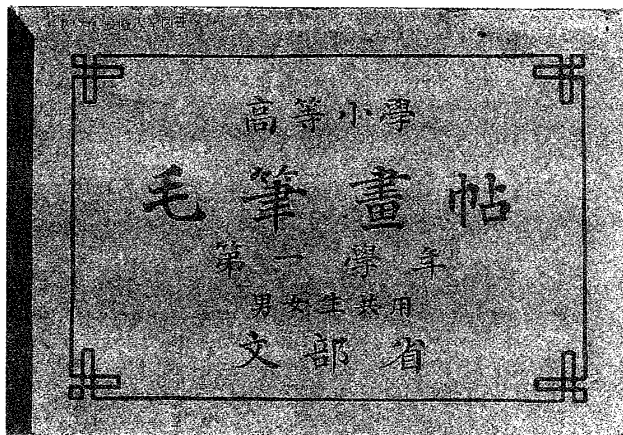 高等小學
毛筆畫帖
第一學年
男女生共用
文部省